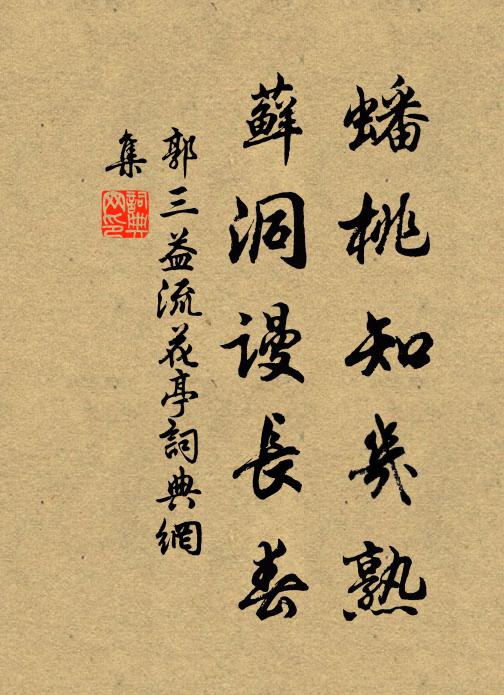 蟠桃知幾熟
蘚洞謾長春
郭三益流花亭詞典網
集
詞典
网印